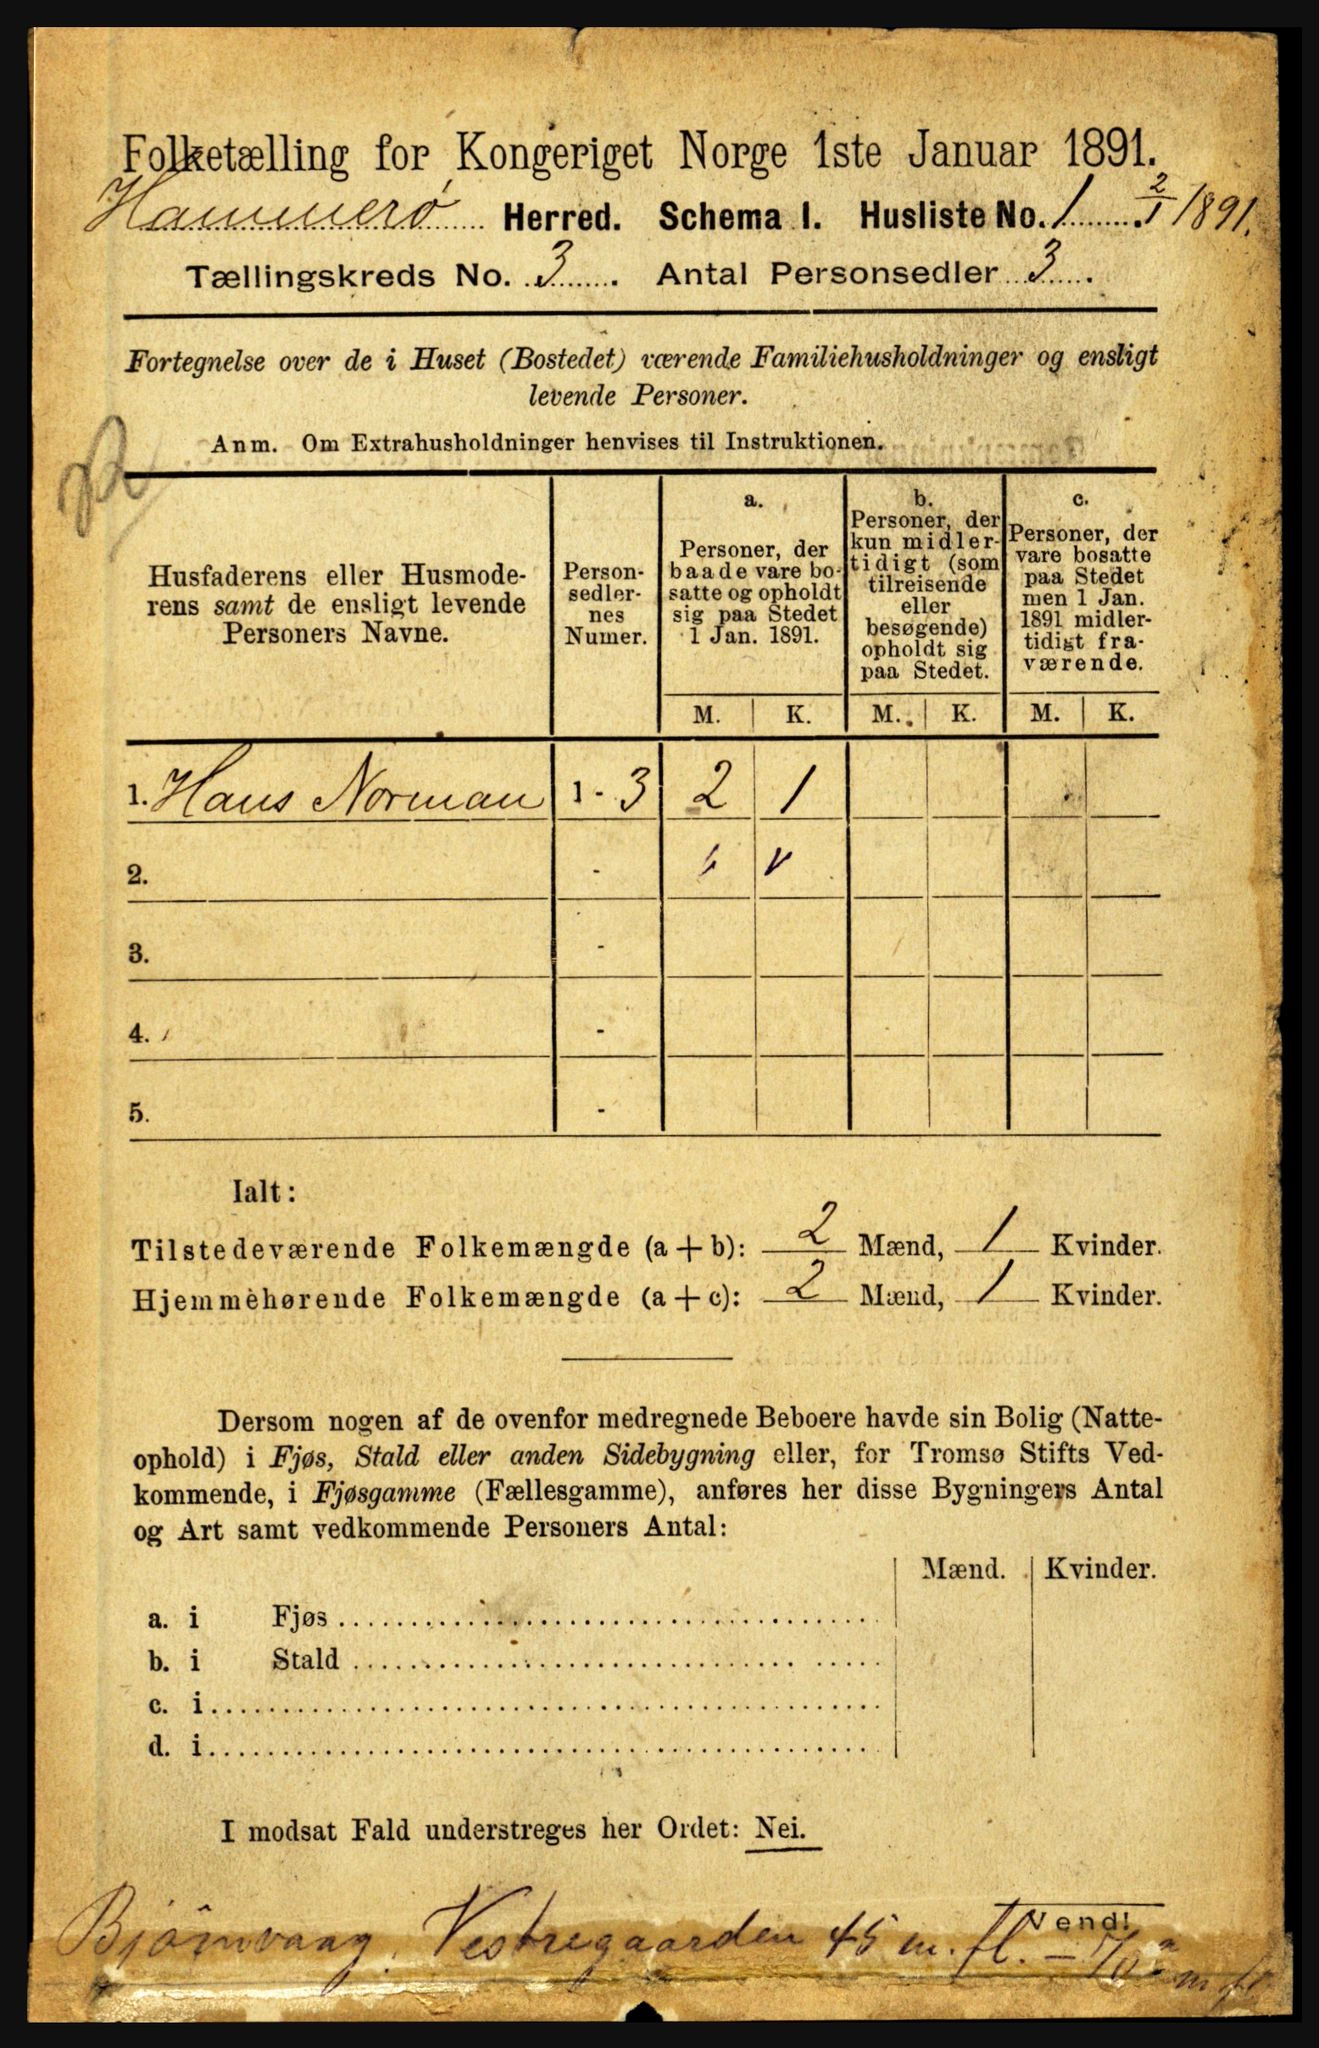 Folketælling for Kongeriget Norge 1ste Januar 1891.
Hammerø Herred. Schema 1. Husliste No. 1 2/1 1891.
Tællingskreds No. 3. Antal Personsedler 3.
Fortegnelse over de i Huset (Bostedet) værende Familiehusholdninger og ensligt
levende Personer.
Anm. Om Extrahusholdninger henvises til Instruktionen.
Husfaderens eller Husmode-
rens samt de ensligt levende
Personers Navne.
Person-
sedler-
nes
Numer.
a.
Personer, der
baade vare bo-
satte og opholdt
sig paa Stedet
1 Jan. 1891.
b.
Personer, der
kun midler-
tidigt (som
tilreisende
eller
besøgende)
opholdt sig
paa Stedet.
c.
Personer, der
vare bosatte
paa Stedet
men 1 Jan.
1891 midler-
tidigt fra-
værende.
M. K. M. K. M. K.
1. Hans Norman 1 - 3 2 1
2. -
3. -
4. -
5. -
Ialt:
Tilstedeværende Folkemængde (a + b): 2 Mænd, 1 Kvinder.
Hjemmehørende Folkemængde (a + c): 2 Mænd, 1 Kvinder.
Dersom nogen af de ovenfor medregnede Beboere havde sin Bolig (Natte-
ophold) i Fjøs, Stald eller anden Sidebygning eller, for Tromsø Stifts Ved-
kommende, i Fjøsgamme (Fællesgamme), anføres her disse Bygningers Antal
og Art samt vedkommende Personers Antal:
Mænd. Kvinder.
a. i Fjøs
b. i Stald
c. i
d. i
I modsat Fald understreges her Ordet: Nei.
Vend!
Bjørnvaag, Vestregaarden 45 m. fl.